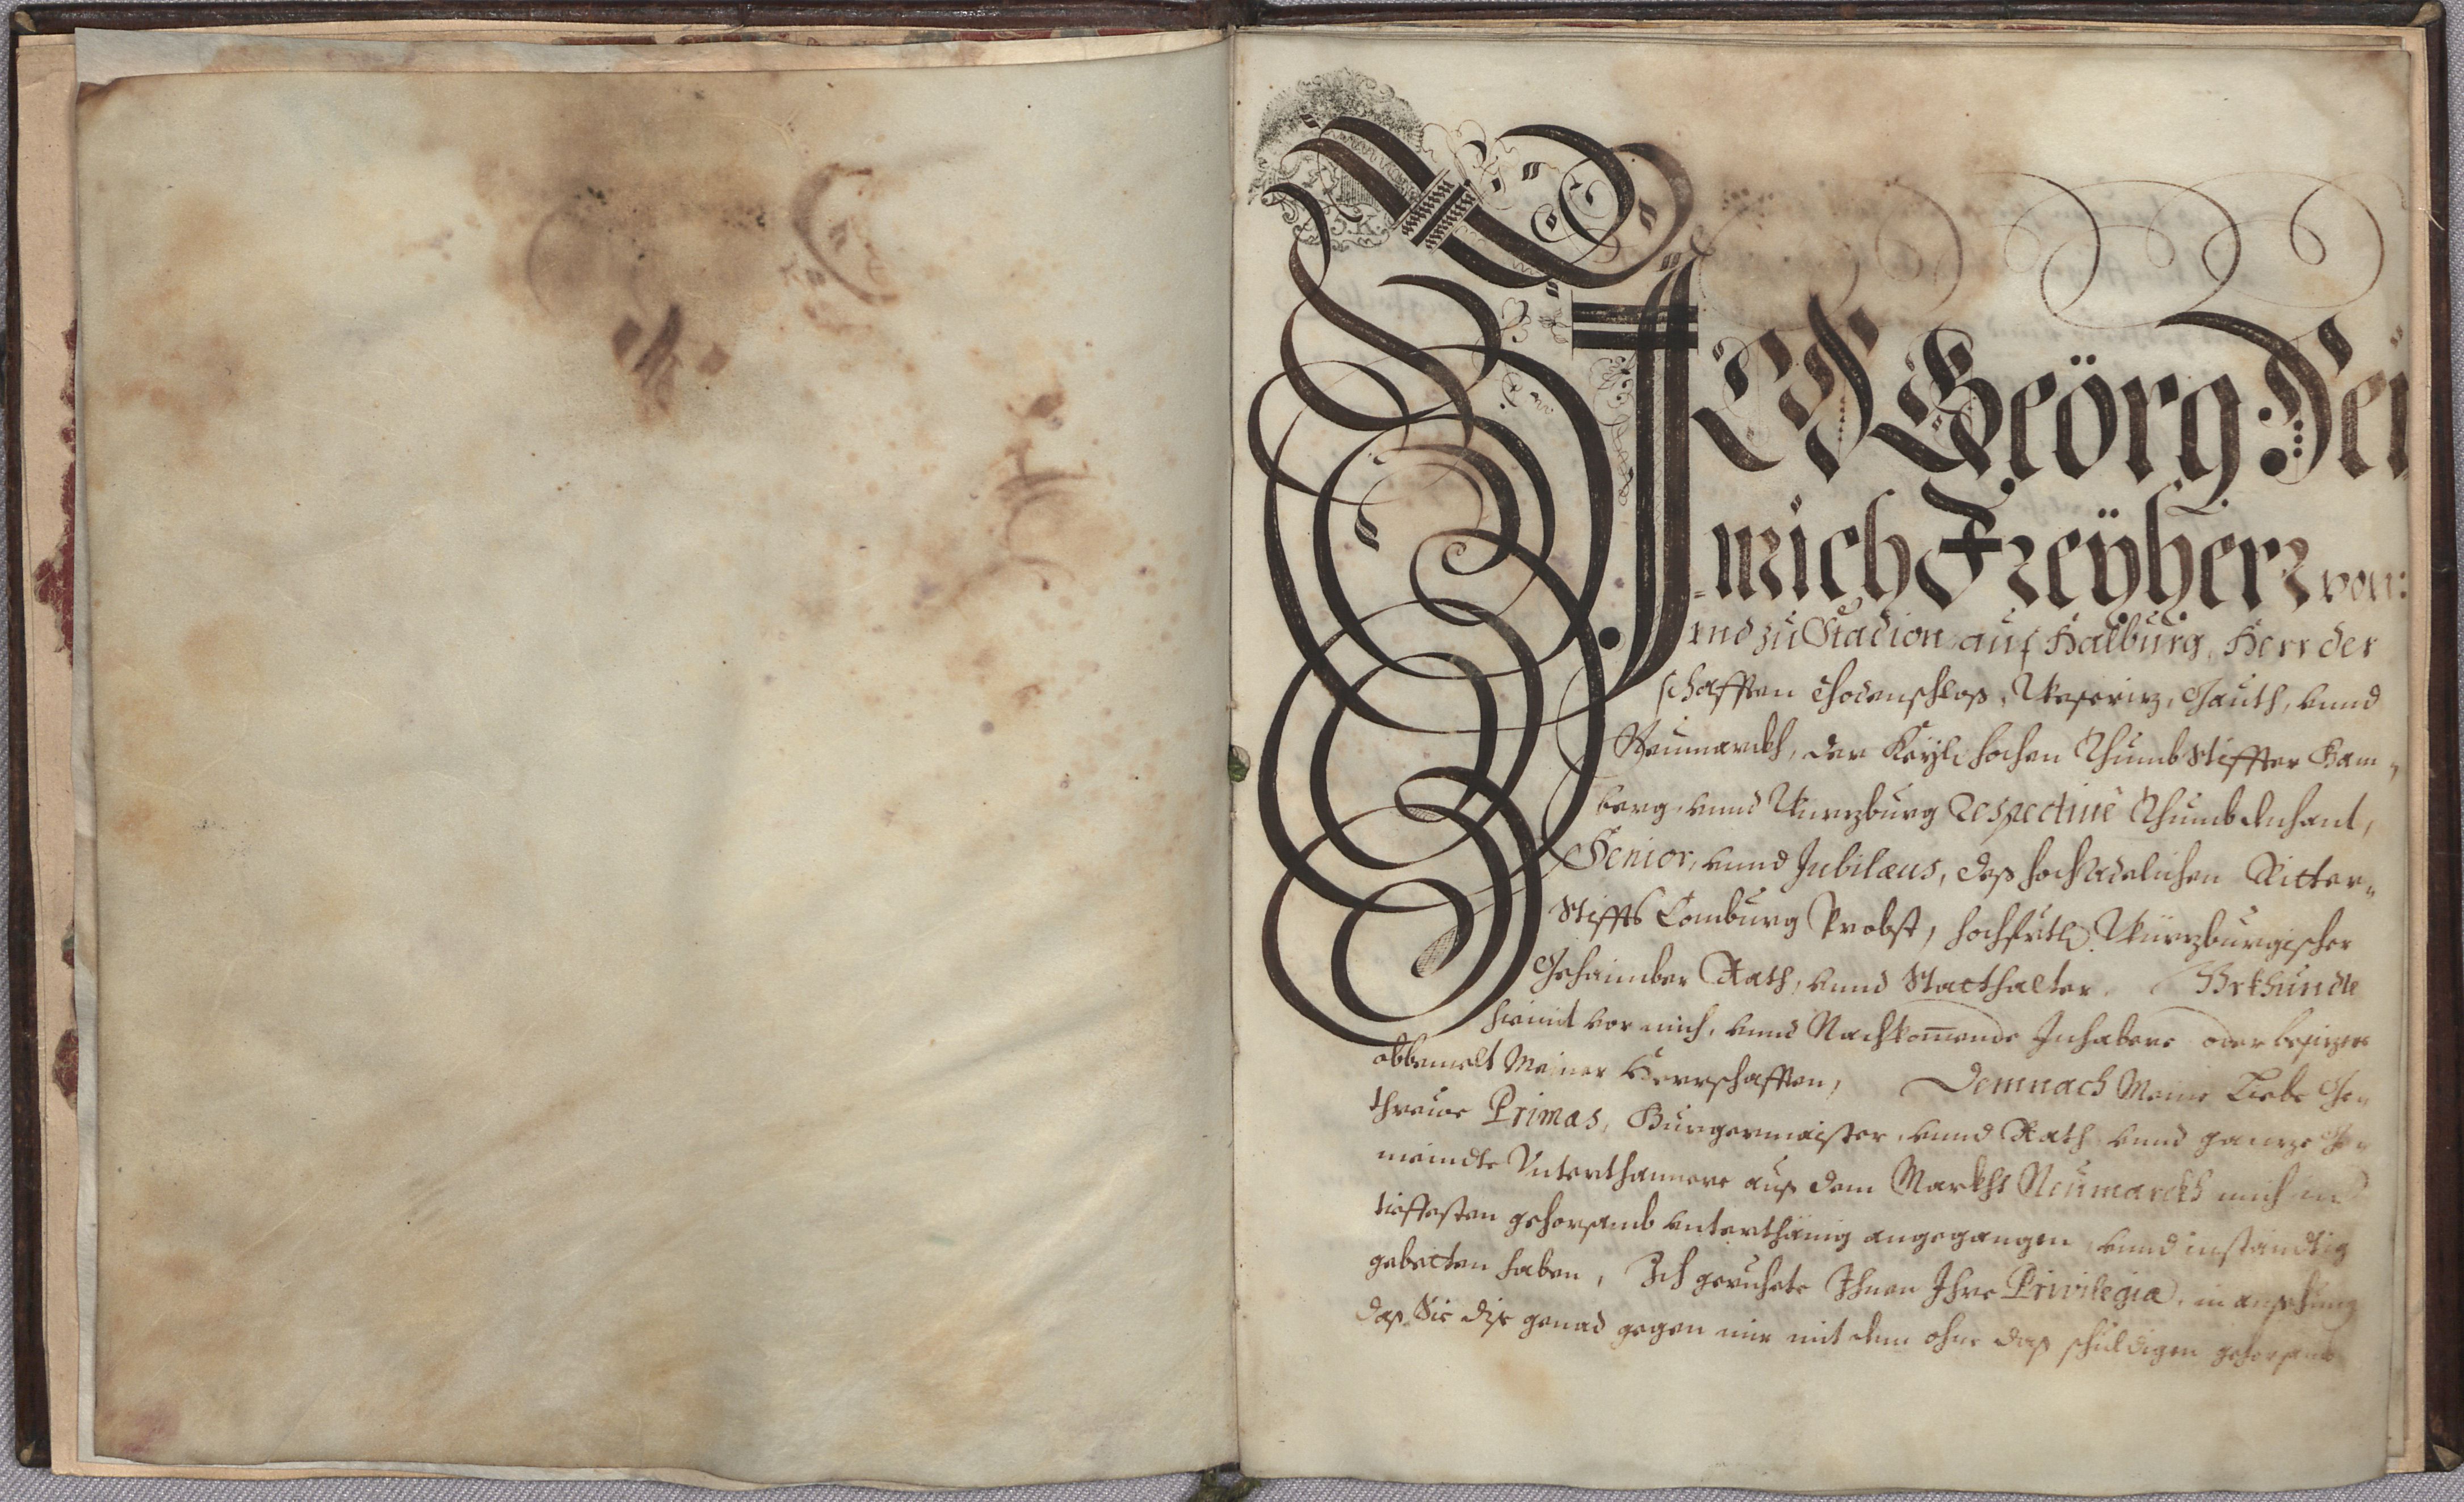 3.K.
ICH Geörg Hei
=nrich Freÿherr von:
vnd zu Stadion auf Halburg, Herr der
schafften Chodenschloß, Reseritz, Gauth, vnnd
Neumarckh, der Keÿl: hochen Thumb Stiffter Bam„
berg, vnnd Wurzburg Respective Thumb dechant,
Senior, vnnd Jubilæus, deß hochAdelichen Ritter„
Stiffts Comburg Probst, hochfrtl: Würzburgischer
Gehaimber Rath, vnnd Statthalter. Vrkhunde
hiemit vor mich, vnnd Nachkom̄ende Inhabere oder besizere
obbemelt Meiner Herrschafften, Demnach Meine Liebe Ge„
threuee Primas, Burgermaister, vnnd Rath vnnd ganze Ge„
meindte Vnterthannere auß dem Markht Neumarckh mich in
tieffesten gehorsamb vnterthänig angegangen, vnnd inständig
gebetten haben, Ich geruhete Ihnen Ihre Privilegia, in ansehung
daß Sie dise genad gegen mir mit dem ohne daß schuldigen gehorsamb